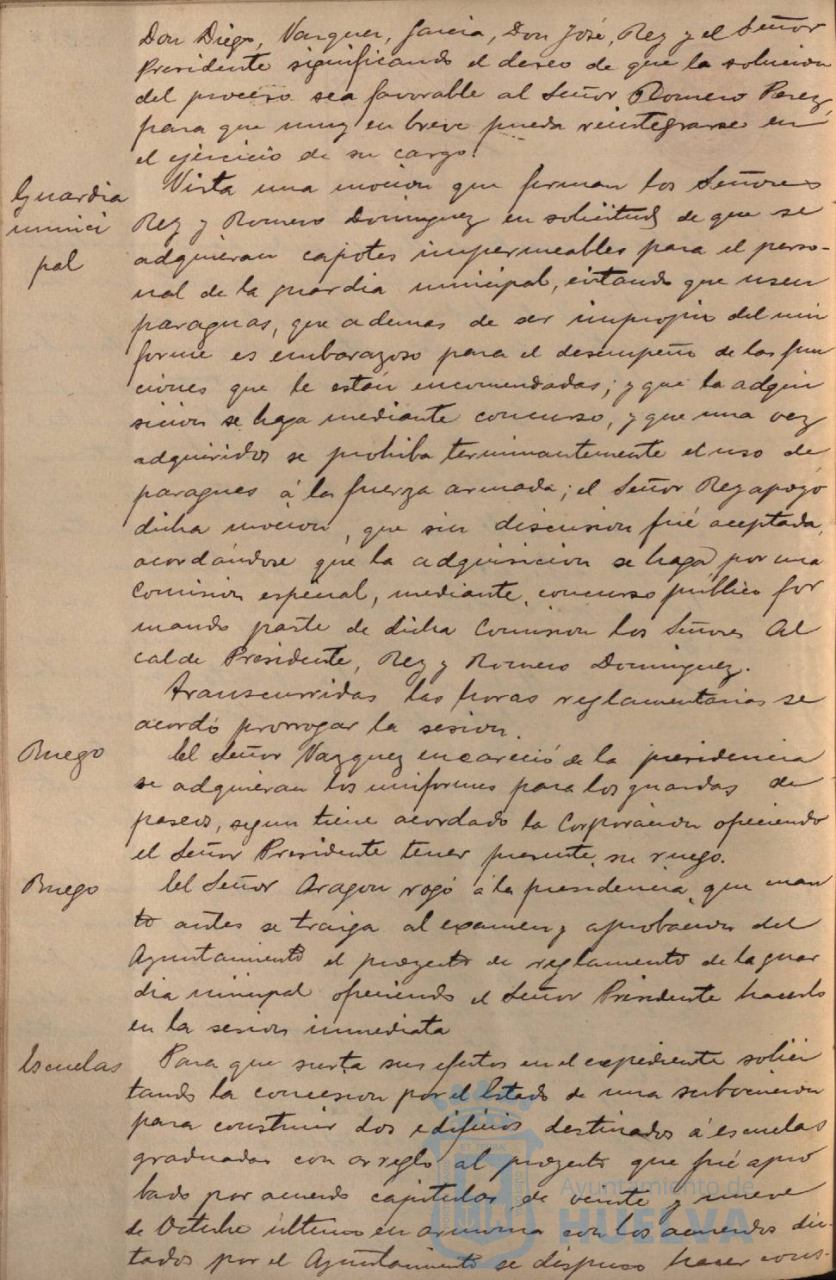 Don Diego, Vazquez, Garcia, Don José, Rey y el Señor
Presidente significando el deseo de que la solucion
del proceso sea favorable al Señor Romero Perez,
para que muy en breve pueda reintegrarse en
el ejercicio de su cargo.
Guardia
munici
pal
Vista una mocion que firman los Señores
Rey y Romero Dominguez en solicitud de que se
adquieran capotes impermeables para el perso-
nal de la guardia municipal, evitando que usen
paraguas, que ademas de ser impropio del uni
forme es embarazoso para el desempeño de las fun
ciones que le están encomendadas; y que la adqui
sicion se haga mediante concurso, y que una vez
adquiridos se prohiba terminantemente el uso de
paraguas á la fuerza armada; el Señor Rey apoyó
dicha mocion, que sin discusion fué aceptada,
acordándose que la adquisicion se haga por una
Comision especial, mediante concurso público for
mando parte de dicha Comision los Señores Al
calde Presidente, Rey y Romero Dominguez.
Transcurridas las horas reglamentarias se
acordó prorrogar la sesion.
Ruego
El Señor Vazquez encareció de la presidencia
se adquieran los uniformes para los guardas de
paseos, segun tiene acordado la Corporacion ofreciendo
el Señor Presidente tener presente su ruego.
Ruego
El Señor Aragon rogó á la presidencia que cuan
to antes se traiga al examen y aprobacion del
Ayuntamiento el proyecto de reglamento de la guar
dia municipal ofreciendo el Señor Presidente hacerlo
en la sesion inmediata
Escuelas
Para que surta sus efectos en el expediente solici
tando la concesion por el Estado de una subvencion
para construir dos edificios destinados á escuelas
graduadas con arreglo al proyecto que fué apro
bado por acuerdo capitular de veinte y nueve
de Octubre último en armonia con los acuerdos dic-
tados por el Ayuntamiento se dispuso hacer cons-
Ayuntamiento de
HUELVA